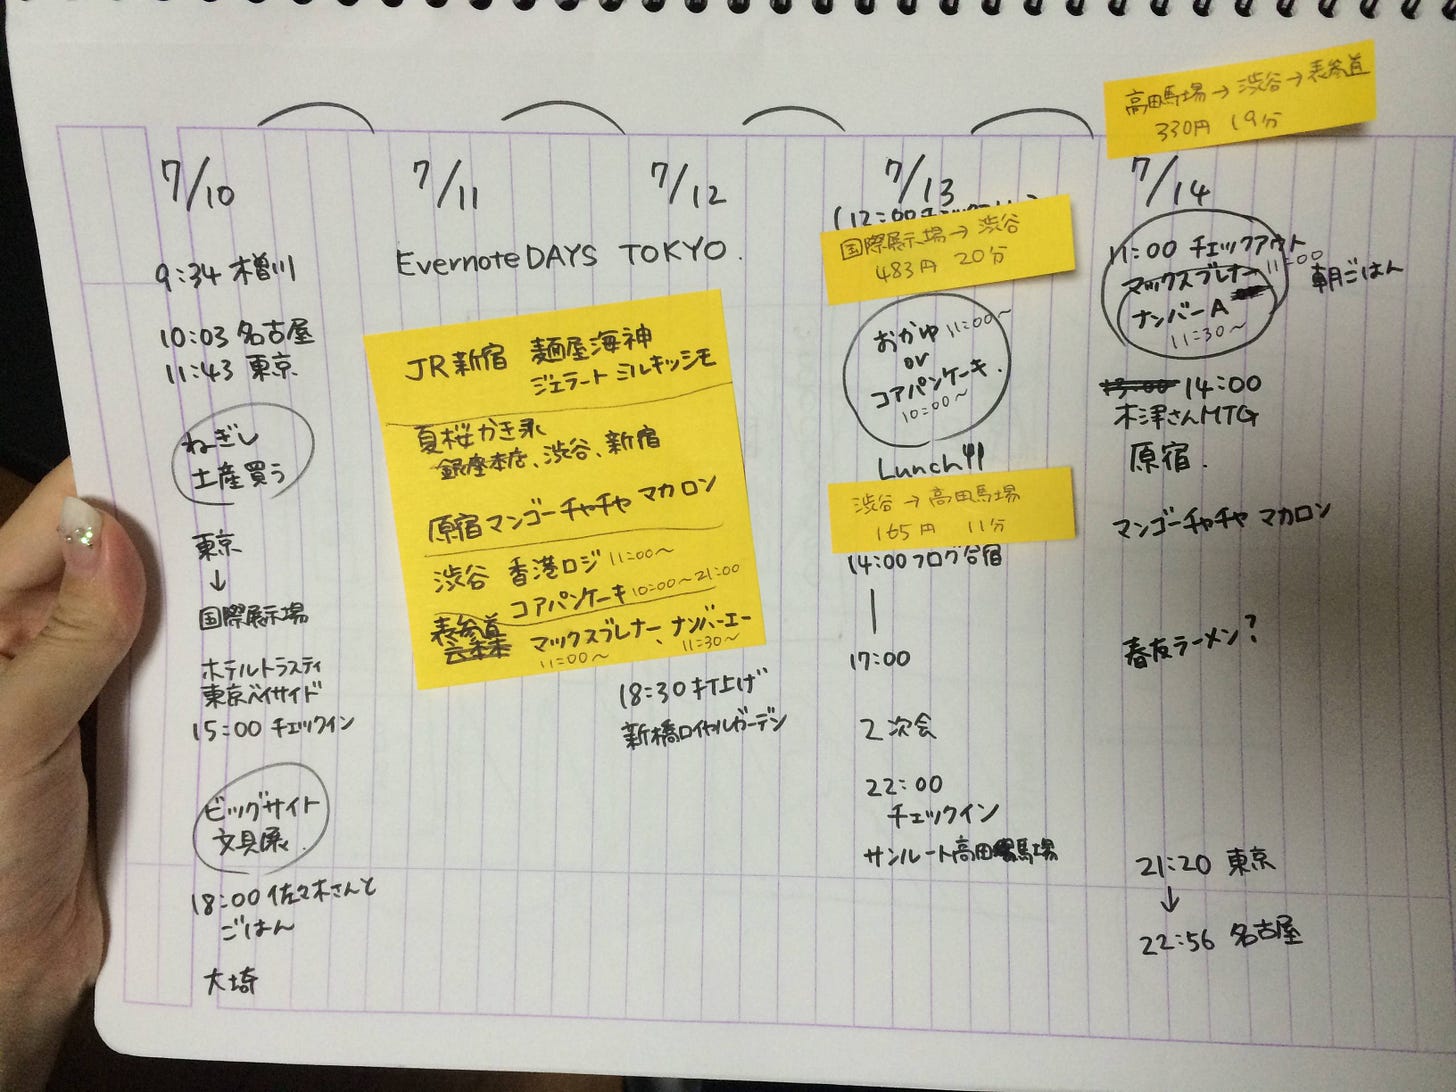 7/10
9:34 木曽川
10:03 名古屋
11:43 東京
ねぎし
土産買う
東京
↓
国際展示場
ホテルトラスティ
東京ベイサイド
15:00 チェックイン
ビッグサイト
文具展.
18:00 佐々木さんと
ごはん
大埼
7/11
7/12
Evernote DAYS TOKYO.
JR新宿 麺屋海神
ジェラート ミルキッシモ
夏桜かき氷
銀座本店、渋谷、新宿
原宿マンゴーチャチャ マカロン
渋谷 香港ロジ 11:00〜
コアパンケーキ 10:00〜21:00
表参道 マックスブレナー、ナンバーエー
11:00〜 11:30〜
18:30 打上げ
新橋ロイヤルガーデン
7/13
(12:00
国際展示場→渋谷
483円 20分
おかゆ 11:00〜
or
コアパンケーキ.
10:00〜
Lunch
渋谷→高田馬場
165円 11分
14:00 ブログ合宿
17:00
2次会
22:00
チェックイン
サンルート高田馬場
高田馬場→渋谷→表参道
330円 19分
7/14
11:00 チェックアウト
マックスブレナー 11:00
朝ごはん
ナンバーA
11:30〜
14:00
木津さんMTG
原宿.
マンゴーチャチャ マカロン
春友ラーメン?
21:20 東京
↓
22:56 名古屋